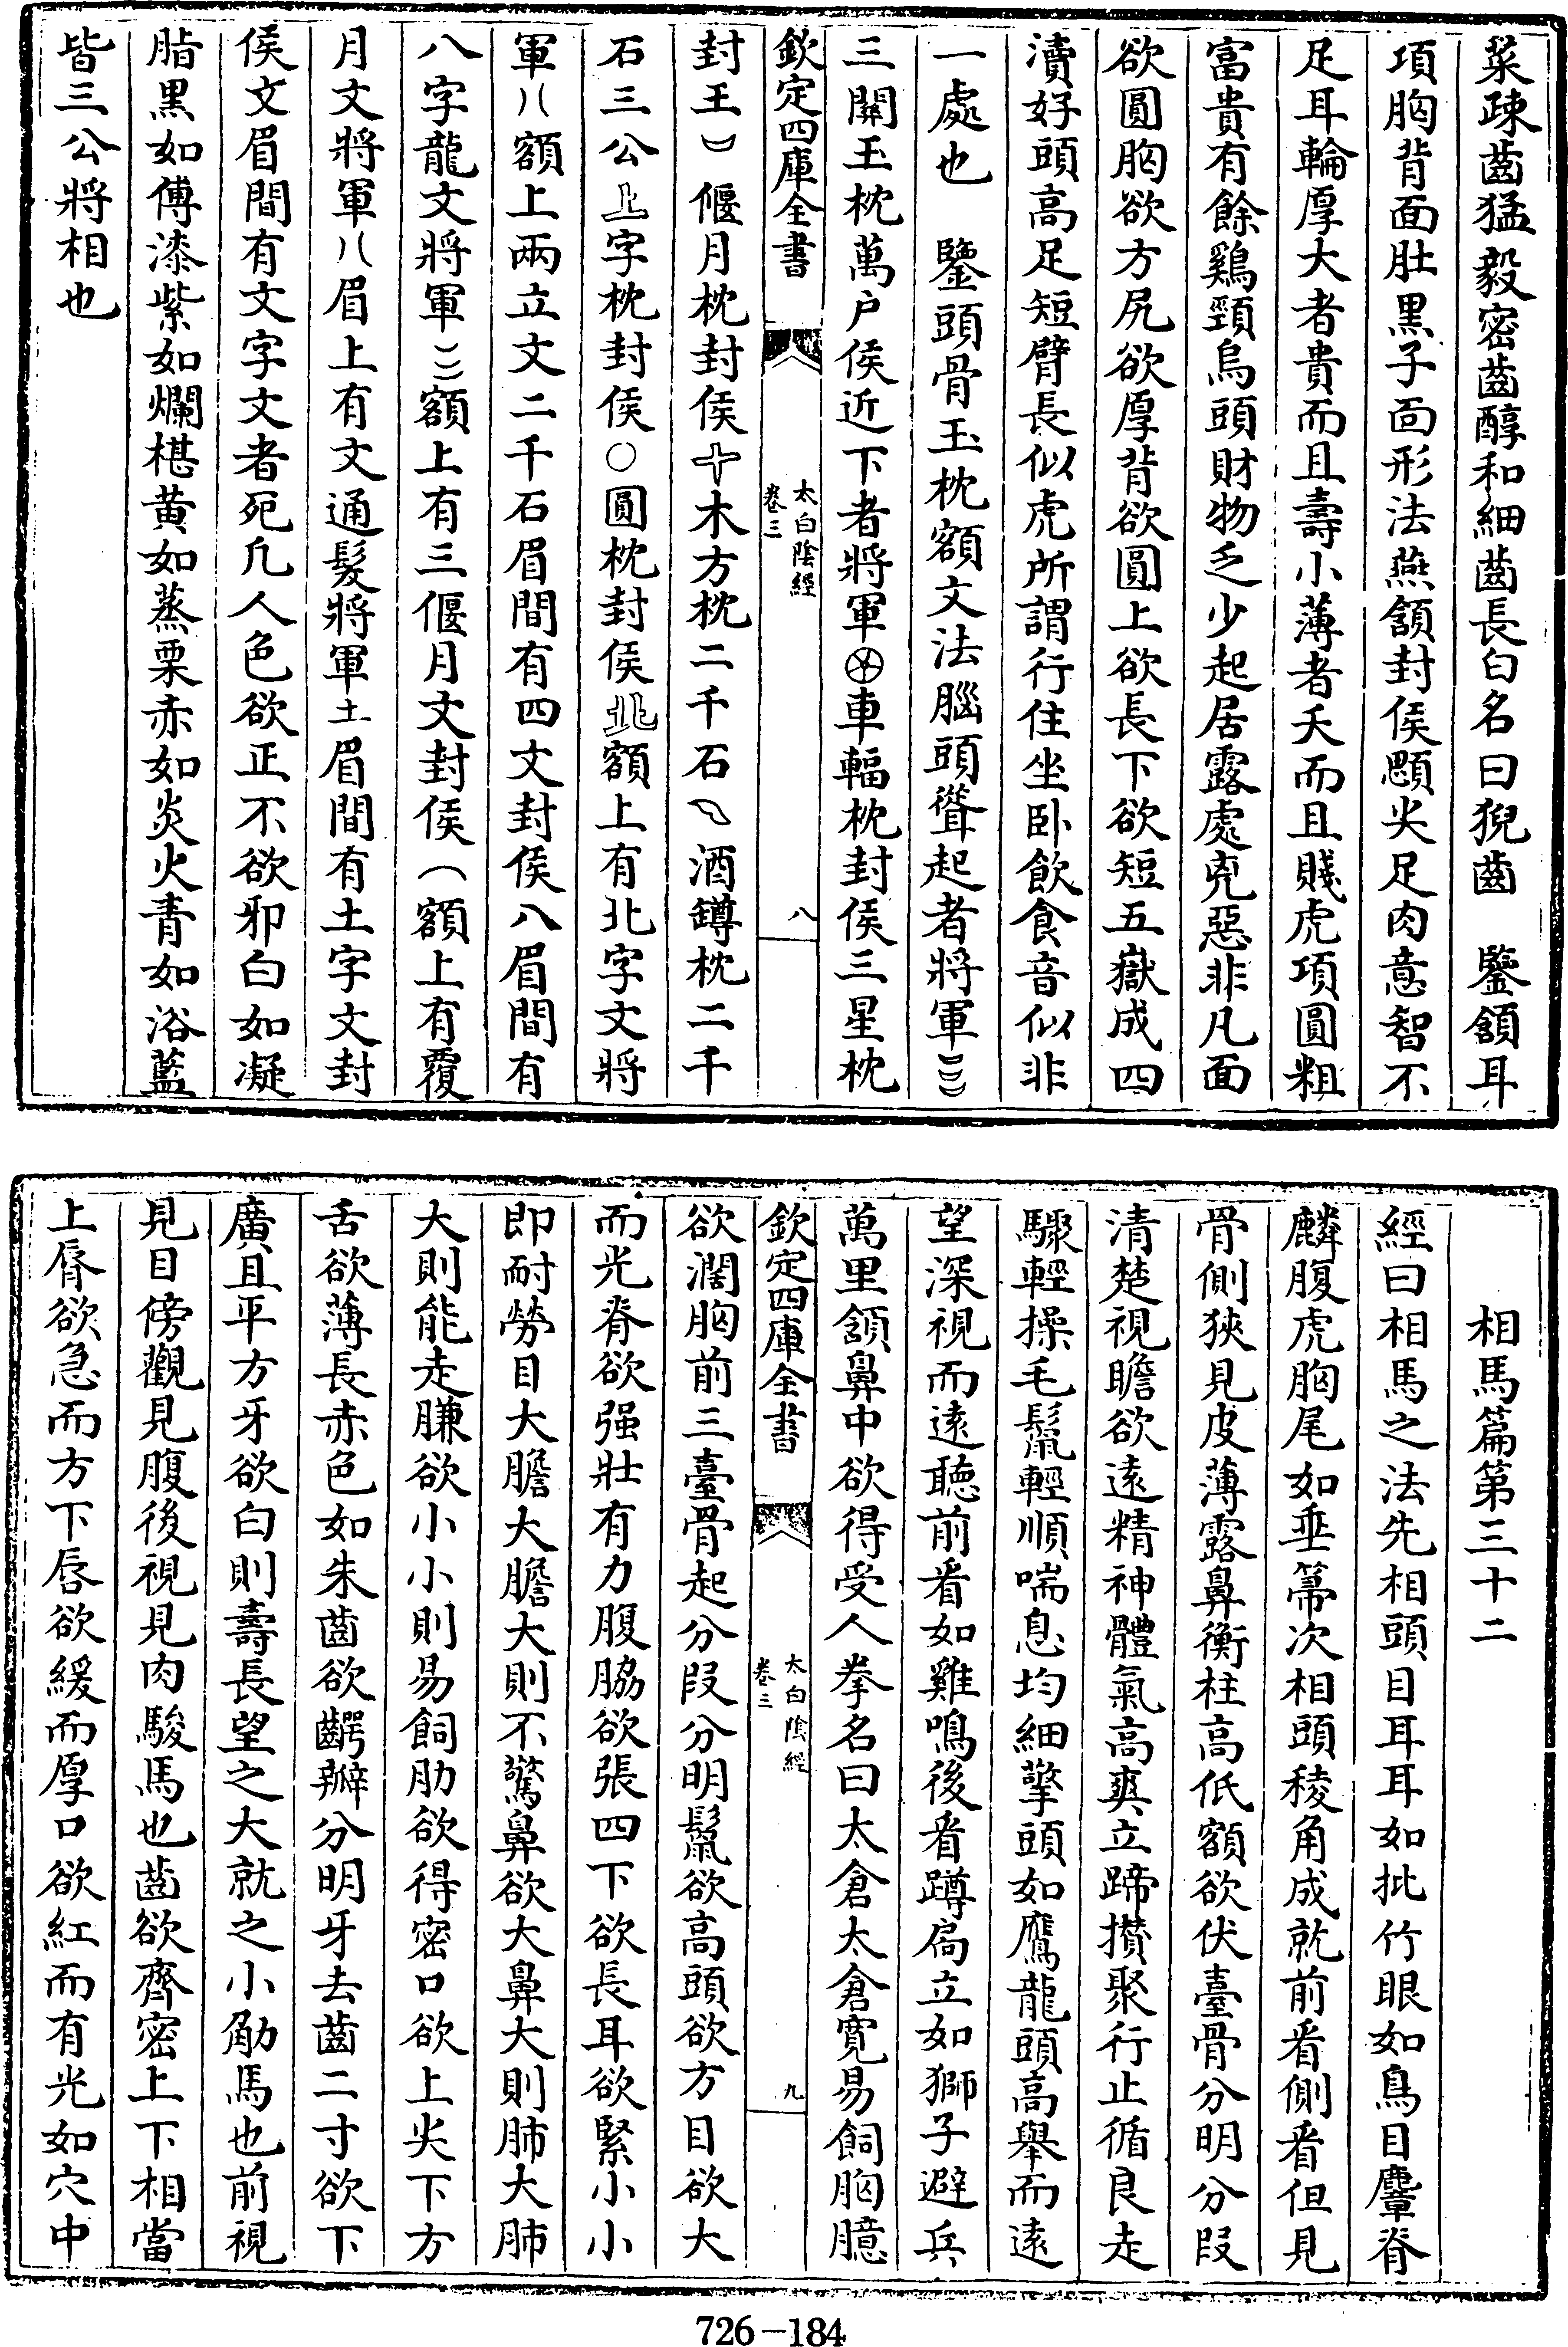 菜疎齒猛毅密齒醇和細齒長白名曰猊齒　鑒頷耳
項胸背面肚黑子面形法燕頷封侯顋尖足肉意智不
足耳輪厚大者貴而且壽小薄者夭而且賤虎項圓粗
富貴有餘鷄頸烏頭財物乏少起居露處兇惡非凡面
欲圓胸欲方尻欲厚背欲圓上欲長下欲短五嶽成四
瀆好頭高足短臂長似虎所謂行住坐卧飲食音似非
一處也　鑒頭骨玉枕額文法腦頭聳起者將軍
三關玉枕萬户侯近下者將軍車輻枕封侯三星枕
欽定四庫全書
太白陰經
卷三
八
封王偃月枕封侯木方枕二千石酒罇枕二千
石三公上字枕封侯○圓枕封侯北額上有北字文將
軍八額上兩立文二千石眉間有四文封侯八眉間有
八字龍文將軍額上有三偃月文封侯額上有覆
月文將軍八眉上有文通髮將軍土眉間有土字文封
侯文眉間有文字文者死凡人色欲正不欲邪白如凝
脂黑如傅漆紫如爛椹黄如蒸栗赤如炎火青如浴藍
皆三公將相也
相馬篇第三十二
經曰相馬之法先相頭目耳耳如批竹眼如鳥目麞脊
麟腹虎胸尾如垂箒次相頭稜角成就前看側看但見
骨側狹見皮薄露鼻衡柱高低額欲伏臺骨分明分段
清楚視瞻欲遠精神體氣高爽立蹄攢聚行止循良走
驟輕操毛鬛輕順喘息均細擎頭如鷹龍頭高舉而遠
望深視而遠聽前看如雞鳴後看蹲扄立如獅子避兵
萬里頷鼻中欲得受人拳名曰太倉太倉寛易飼胸臆
欽定四庫全書
太白陰經
卷三
九
欲濶胸前三臺骨起分段分明鬛欲高頭欲方目欲大
而光脊欲强壯有力腹脇欲張四下欲長耳欲緊小小
即耐勞目大膽大膽大則不驚鼻欲大鼻大則肺大肺
大則能走膁欲小小則易飼肋欲得密口欲上尖下方
舌欲薄長赤色如朱齒欲齶瓣分明牙去齒二寸欲下
廣且平方牙欲白則壽長望之大就之小觔馬也前視
見目傍觀見腹後視見肉駿馬也齒欲齊密上下相當
上脣欲急而方下唇欲緩而厚口欲紅而有光如穴中
726-184